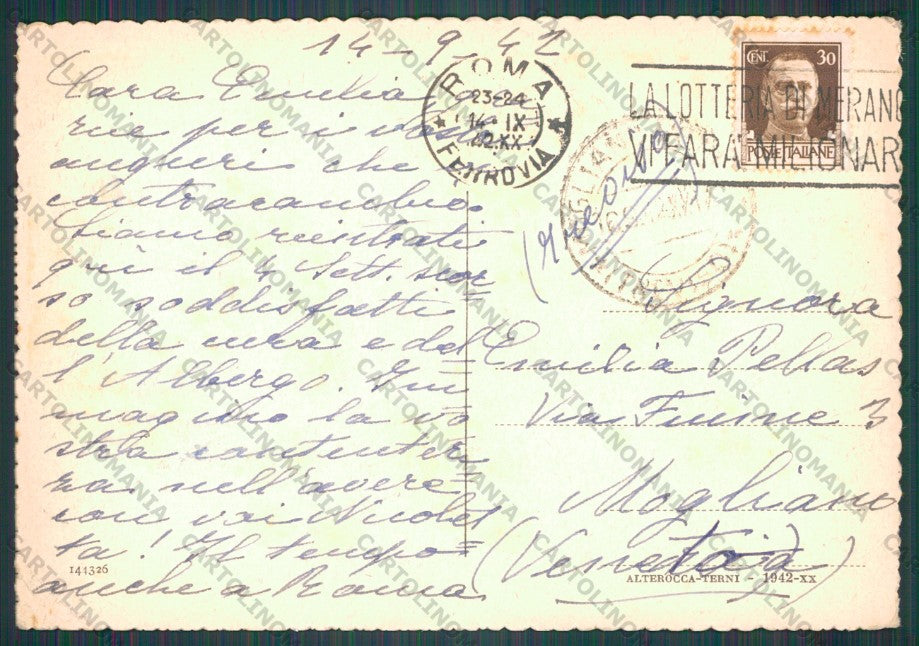 14-9-42
Cara Emilia gra-
zie per i vostri
auguri che
contraccambio.
Siamo rientrati
qui il 4 Sett. scor
so soddisfatti
della cura e del
l'Albergo. Im
magino la vo
stra contentez
za nell'avere
con voi Nicolet
ta! Il tempo
anche a Roma
141326
ROMA
23-24
14 IX
42.XX
FERROVIA
CENT. 30
POSTE ITALIANE
LA LOTTERIA DI MERANO
VI FARÀ MILIONARI
Signora
Emilia Pellas
Via Fiume 3
Mogliano
(Veneto)
ALTEROCCA-TERNI - 1942-XX
CARTOLINOMANIA